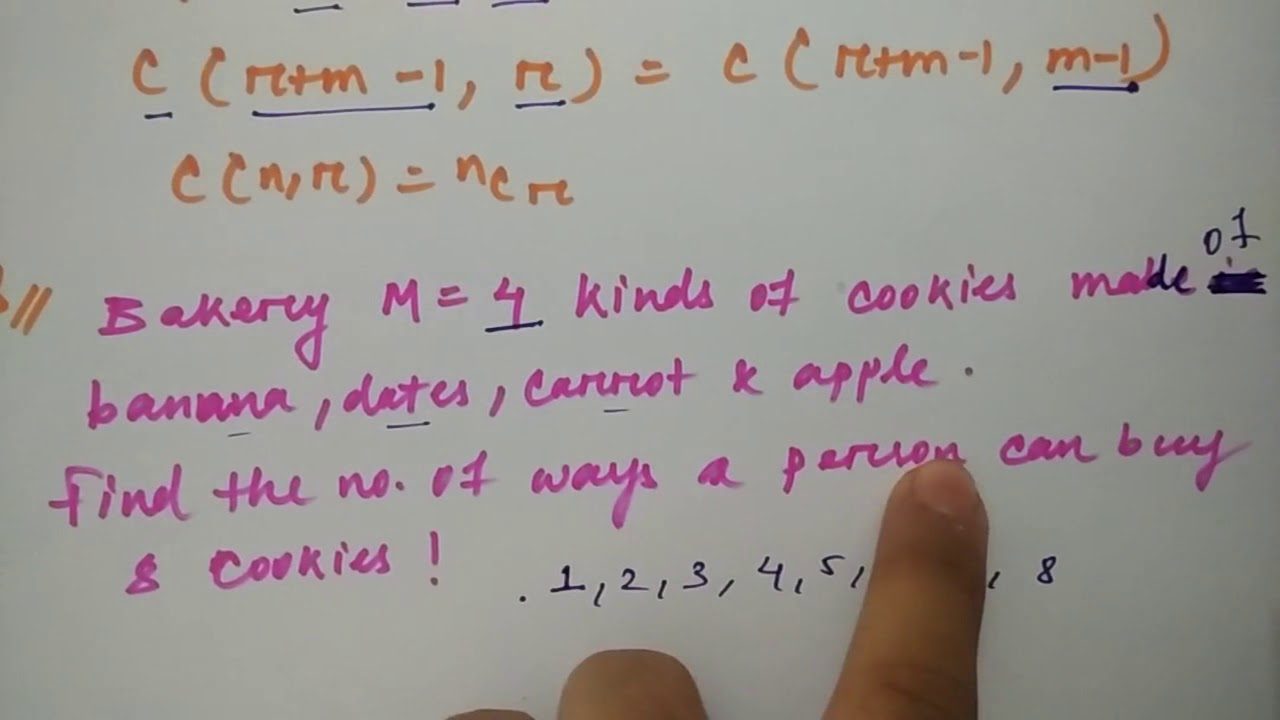 C (r+m-1, r) = C (r+m-1, m-1)
C(n,r) = nCr
Bakery M = 4 kinds of cookies made of
banana, dates, carrot & apple.
Find the no. of ways a person can buy
8 cookies!
. 1, 2, 3, 4, 5, , 8